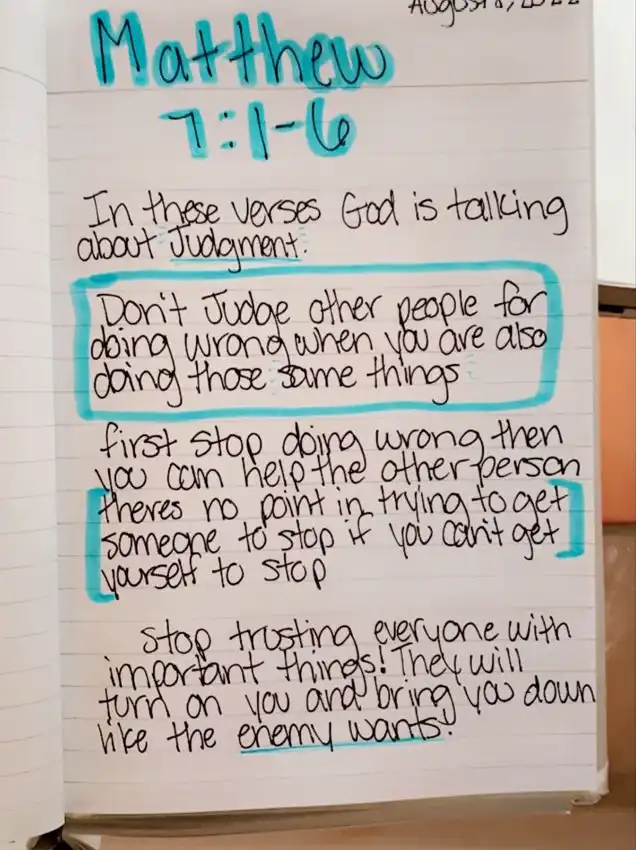 Matthew
7:1-6
In these verses God is talking
about Judgment.
Don't Judge other people for
doing wrong when you are also
doing those same things
first stop doing wrong then
you can help the other person
theres no point in trying to get
someone to stop if you can't get
yourself to stop
Stop trusting everyone with
important things! They will
turn on you and bring you down
like the enemy wants!